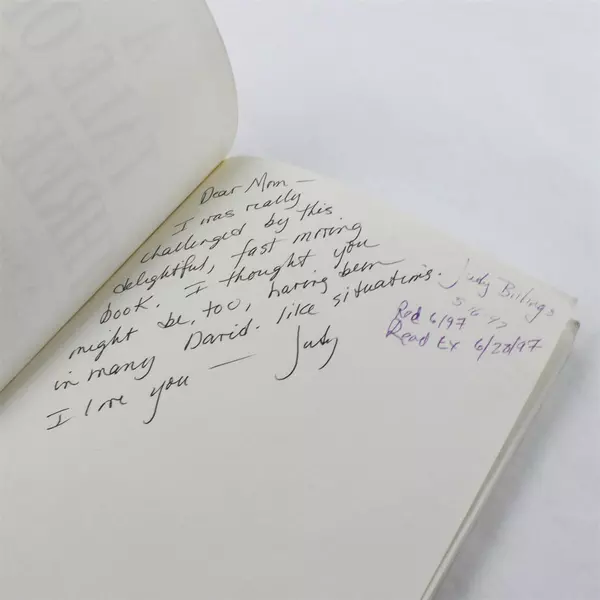 Dear Mom —
I was really
challenged by this
delightful, fast moving
book. I thought you
might be, too, having been
in many David-like situations.
I love you — Judy
Judy Billings
Rec 6/97
Read Ex 6/28/97